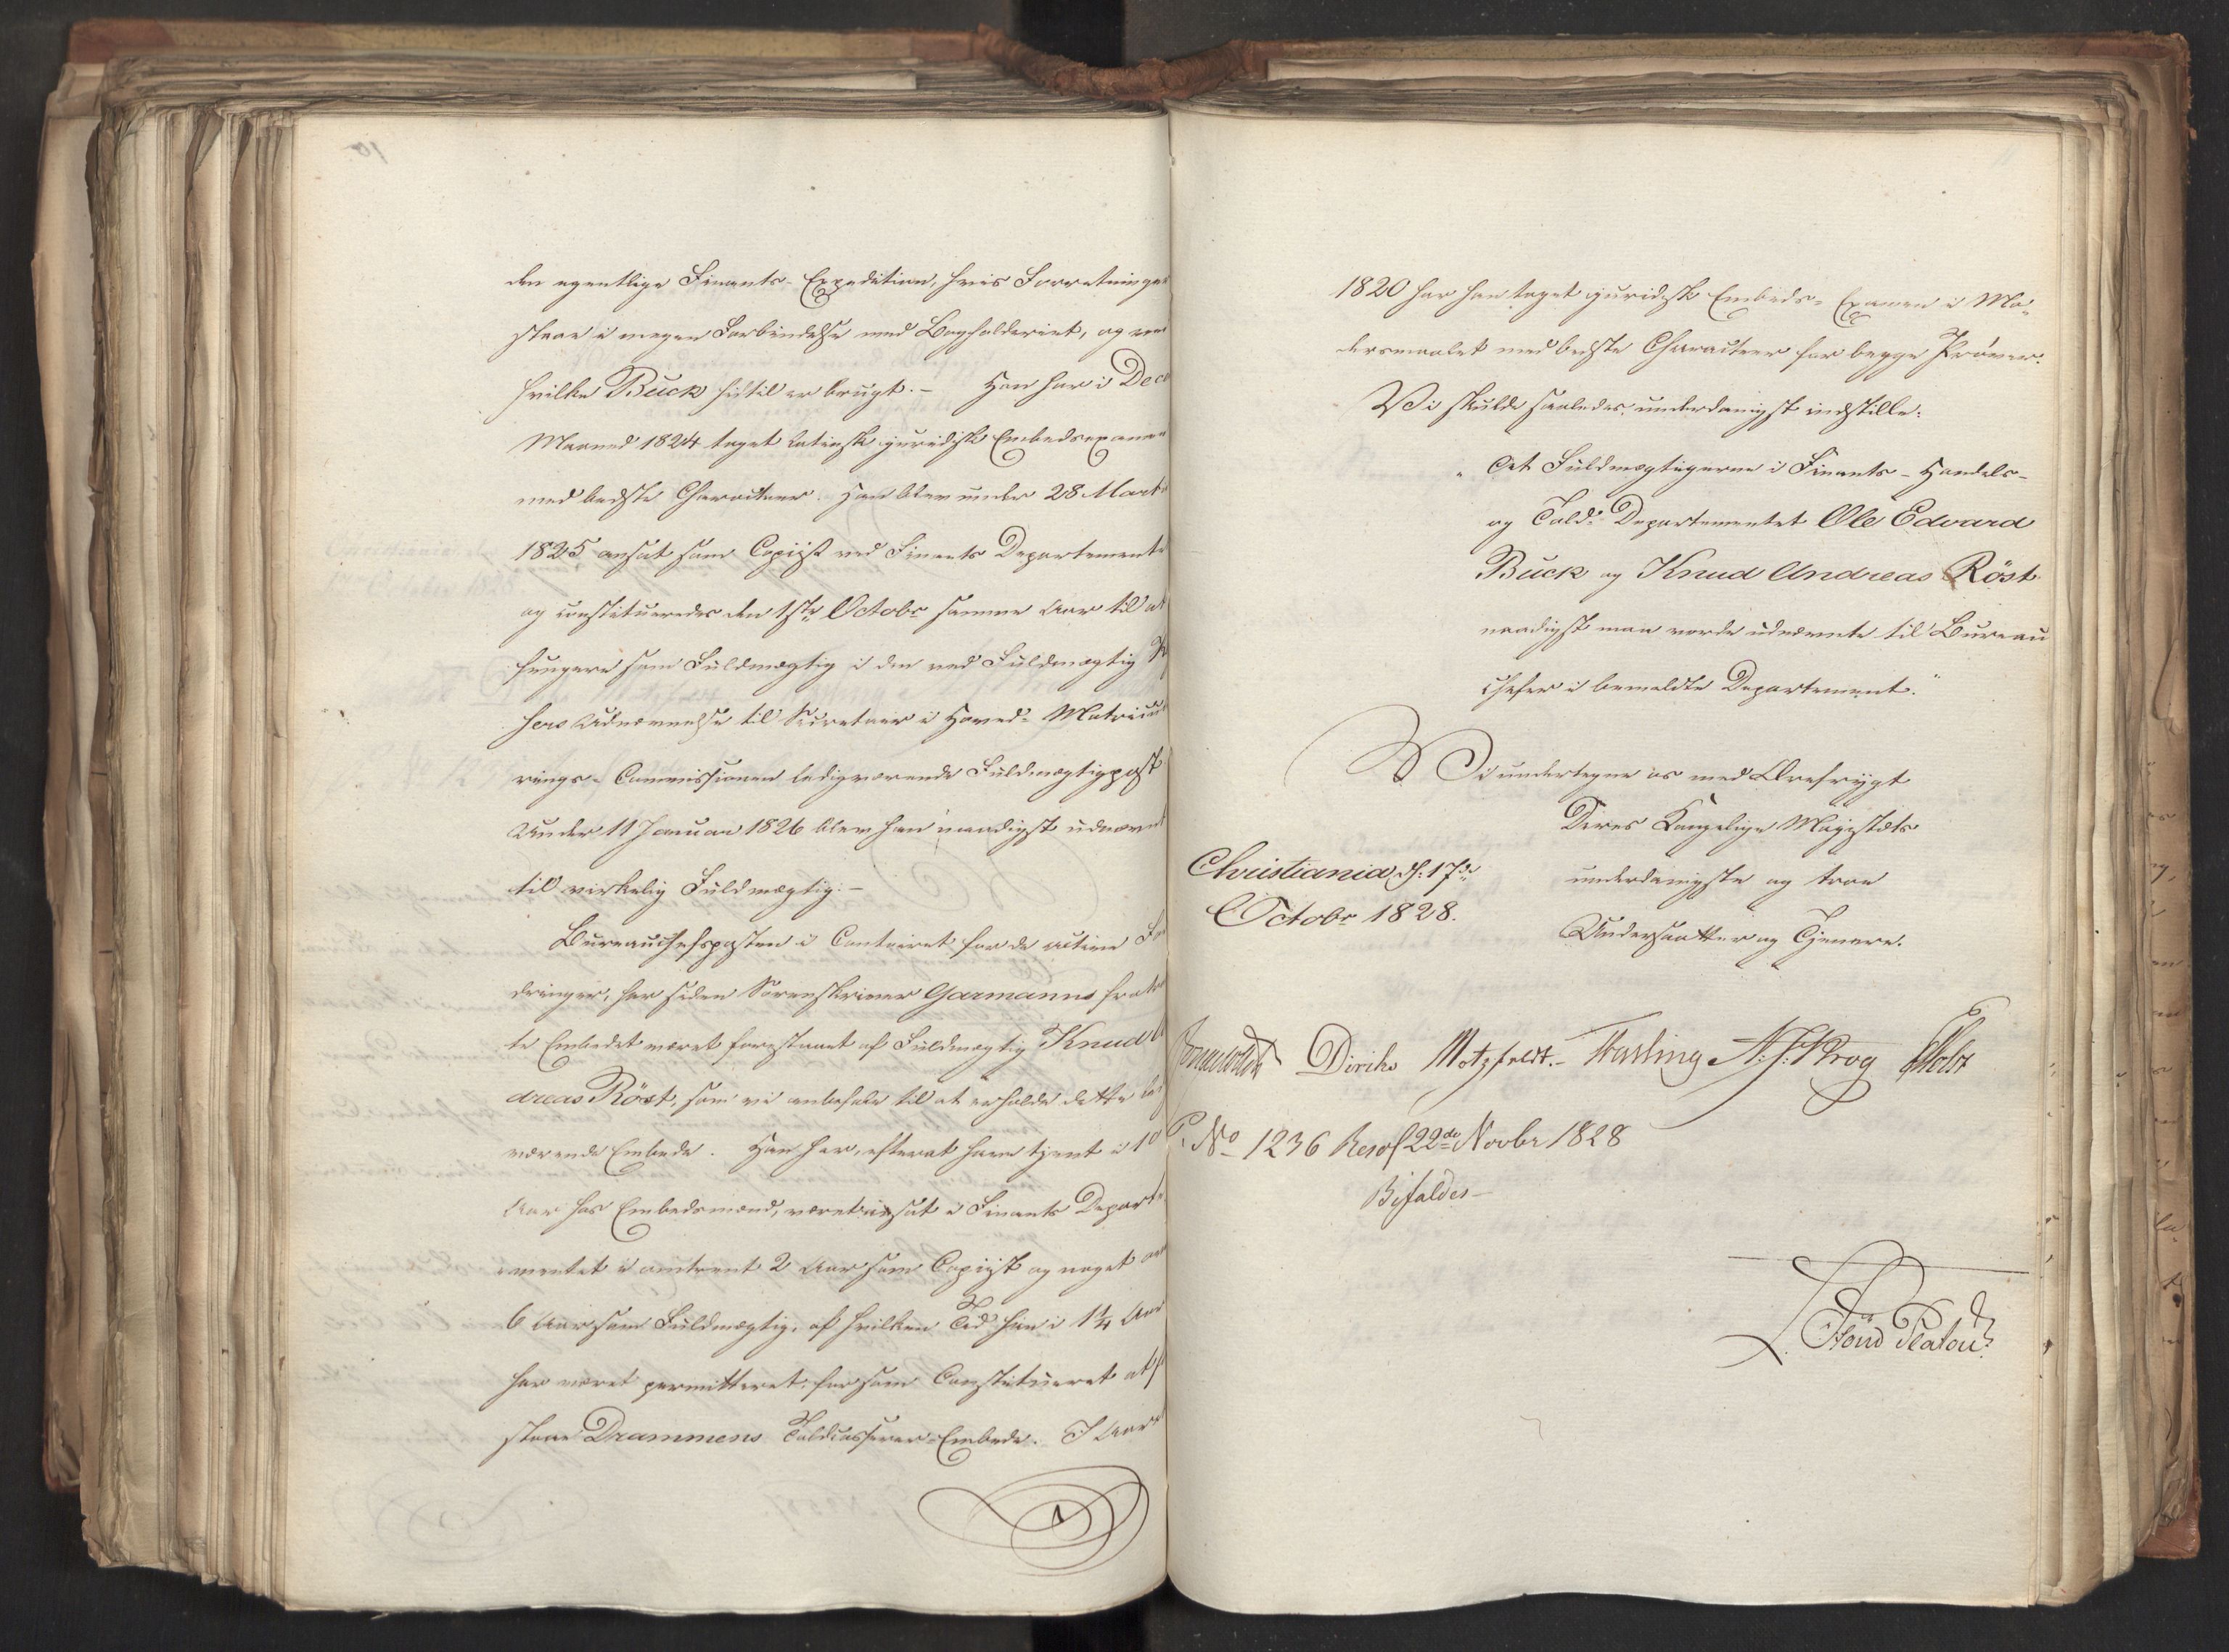 den egentlige Finants-Expedition, hvis Forretninger
staae i megen Forbindelse med Bogholderiet, og ved
hvilke Buck hidtil er brugt. – Han har i Dec
Maaned 1824 taget latinsk juridisk Embedsexamen
med bedste Characteer. Han blev under 28 Marts
1825 ansat som Copiist ved Finants Departementet
og constitueredes den 1ste Octobr samme Aar til at
fungere som Fuldmægtig i den ved Fuldmægtig
hers Udnævnelse til Secretair i Hoved-Matricul
rings-Commissionen ledigværende Fuldmægtigpost
Under 11 Januar 1826 blev han naadigst udnævnt
til virkelig Fuldmægtig. –
Bureauchefsposten i Contoiret for de active For
dringer, har siden Sorenskriver Garmanns fratraad
te Embedet været forestaaet af Fuldmægtig Knud An
dreas Röst, som vi anbefale til at erholde dette led
værende Embede. Han har, efterat have tjent i 10
Aar hos Embedsmænd, været ansat i Finants Departe
mentet i omtrent 2 Aar som Copiist og noget over
6 Aar som Fuldmægtig, af hvilken Tid han i 1¼ Aar
har været permitteret for som Constitueret at fore
staae Drammens Toldcasserer-Embede. I Aaret
1820 har han taget juridisk Embeds-Examen i Mo-
dersmaalet med bedste Characteer for begge Prøver.
Vi skulde saaledes underdanigst indstille:
"At Fuldmægtigerne i Finants-Handels-
og Told-Departementet Ole Edvard
Buck og Knud Andreas Röst
naadigst maa vorde udnævnte til Bureau
chefer i bemeldte Departement."
Vi undertegne os med Ærefrygt
Deres Kongelige Majestæts
Christiania d. 17de
underdanigste og troe
Octobr 1828.
Undersaatter og Tjenere.
Diriks Motzfeldt. Fasting N. J. Krog Holst
P. No 1236 Resol 22de Novbr 1828
Bifaldes –
Stoud Platou